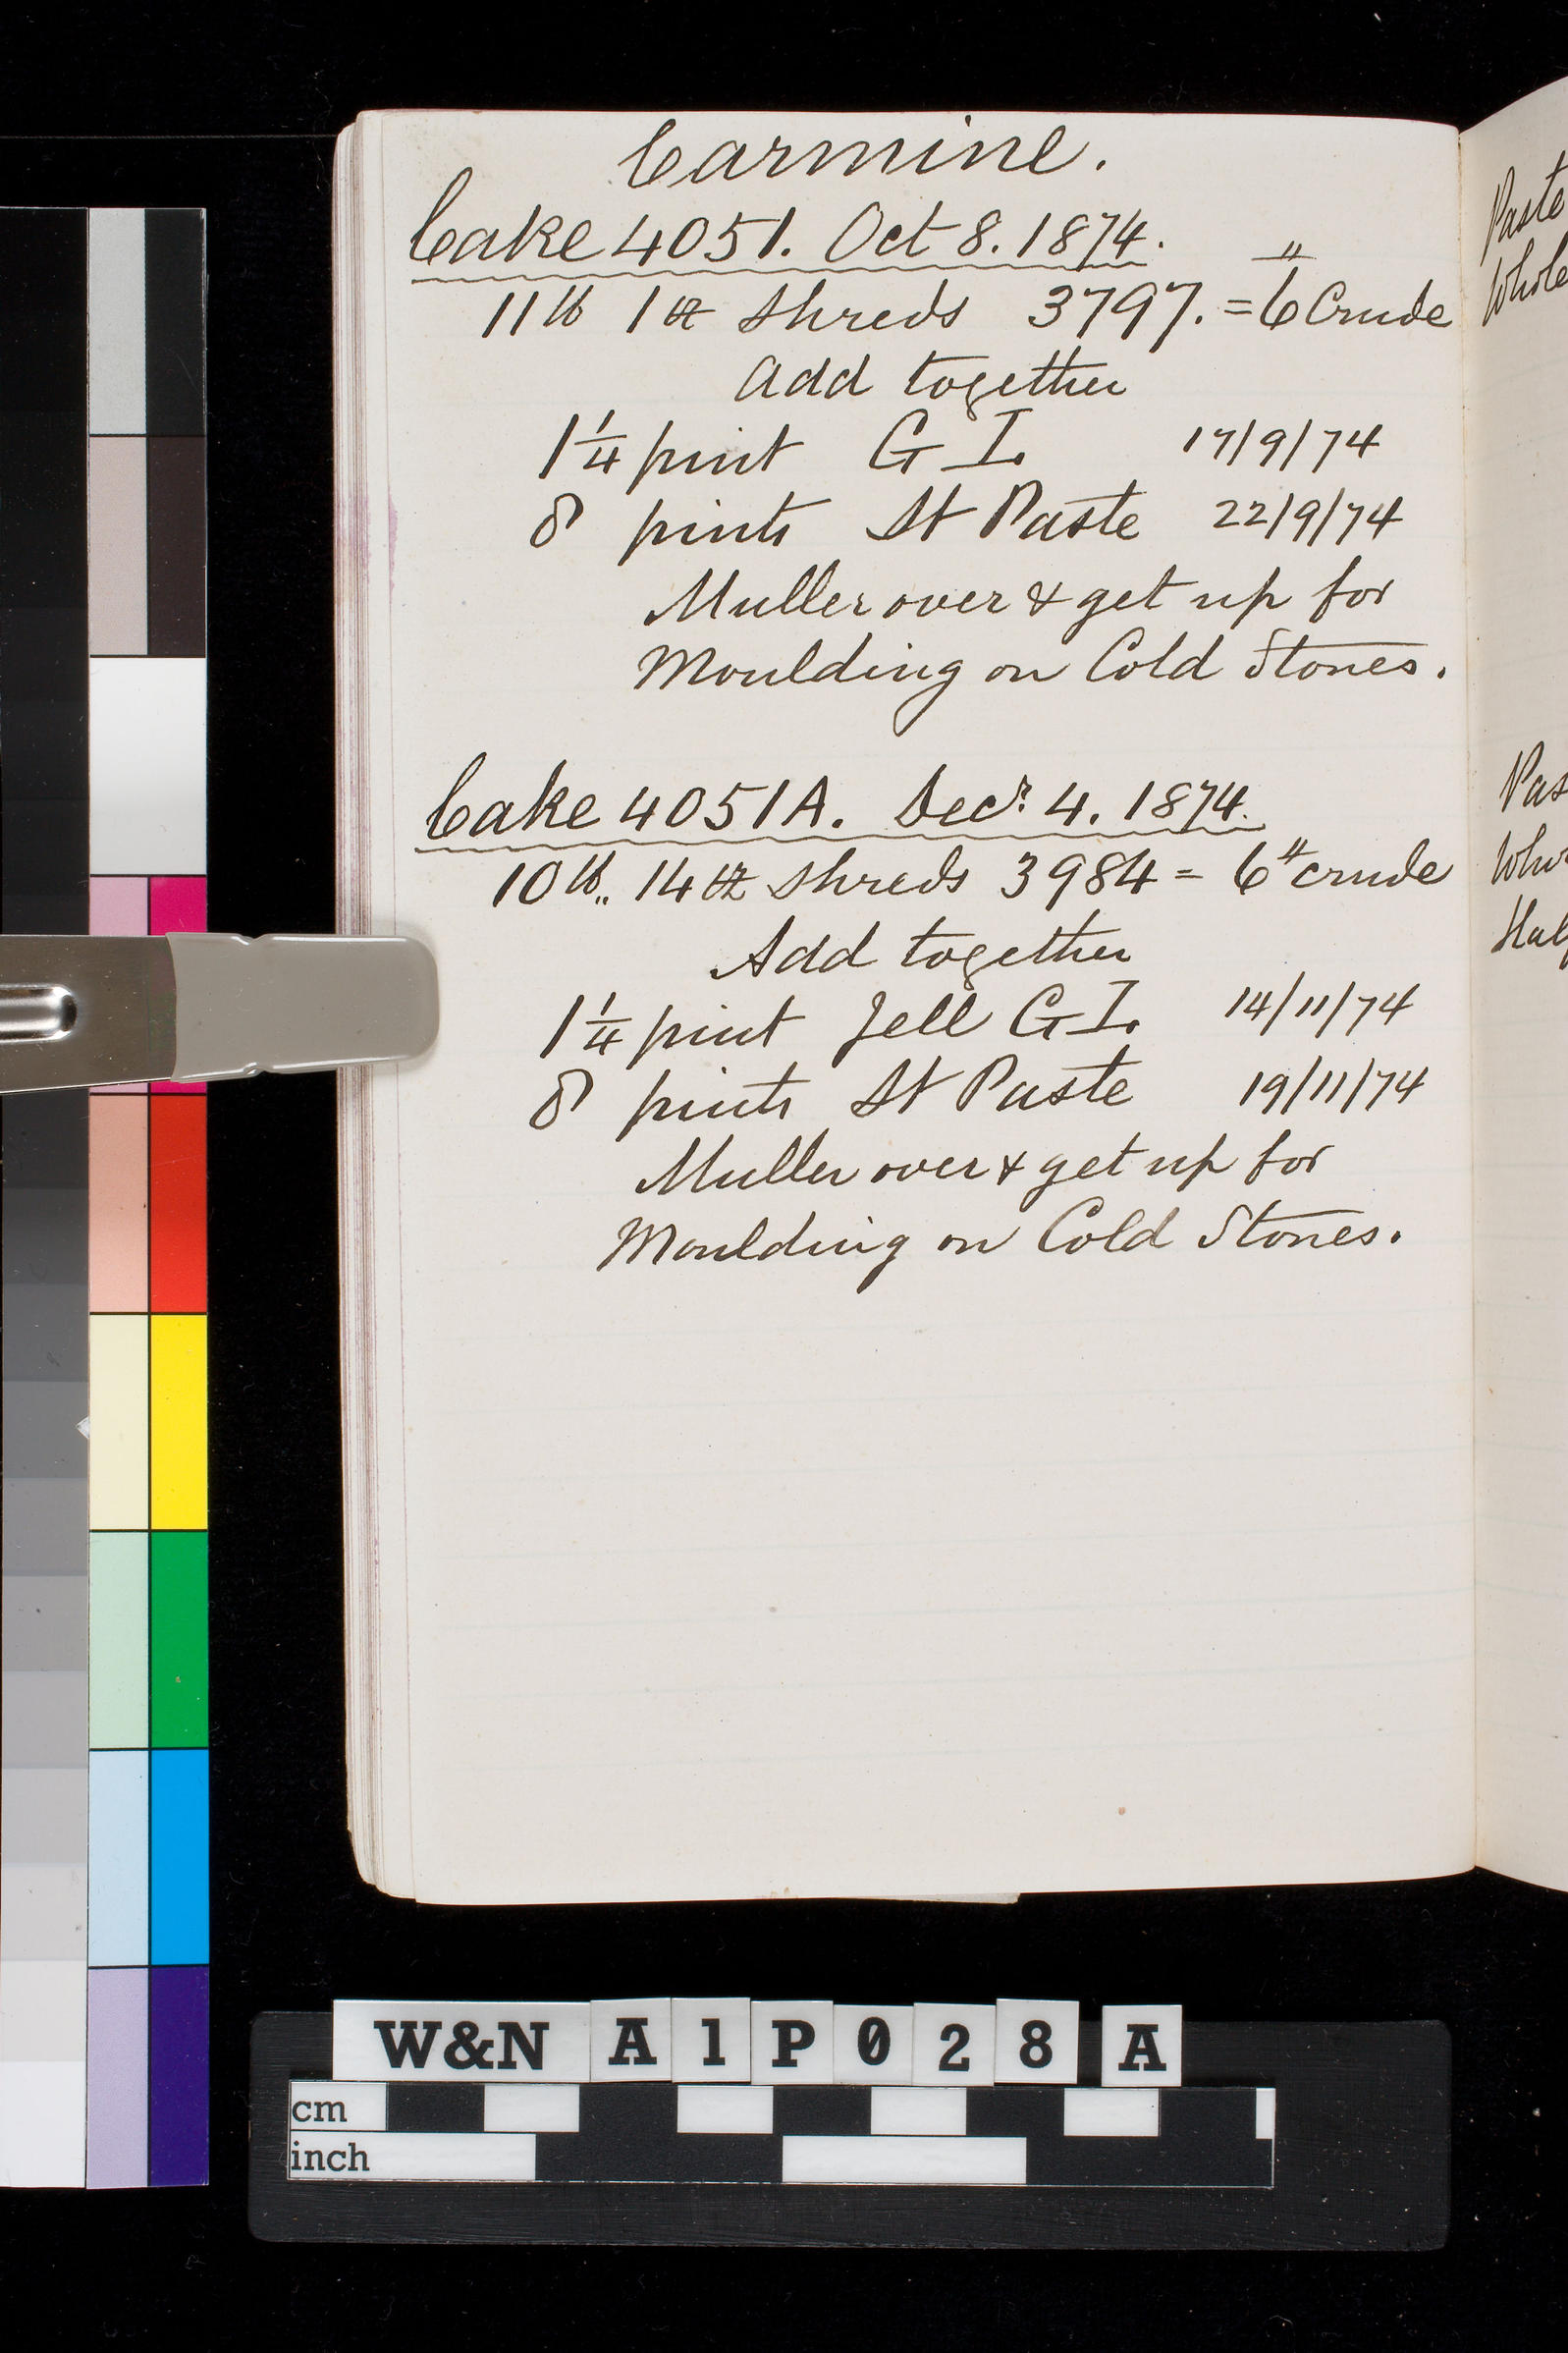 Carmine.
Cake 4051. Oct 8. 1874.
11 lb 1 oz Shreds 3797. = 6" Crude
Add together
1¼ pint G I. 17/9/74
8 pints St Paste 22/9/74
Muller over & get up for
Moulding on Cold Stones.
Cake 4051A. Decr. 4. 1874.
10 lb,, 14 oz Shreds 3984 = 6" crude
Add together
1¼ pint Jell G I. 14/11/74
8 pints St Paste 19/11/74
Muller over & get up for
Moulding on Cold Stones.
Paste
Whole
W&N A1P028 A
cm
inch